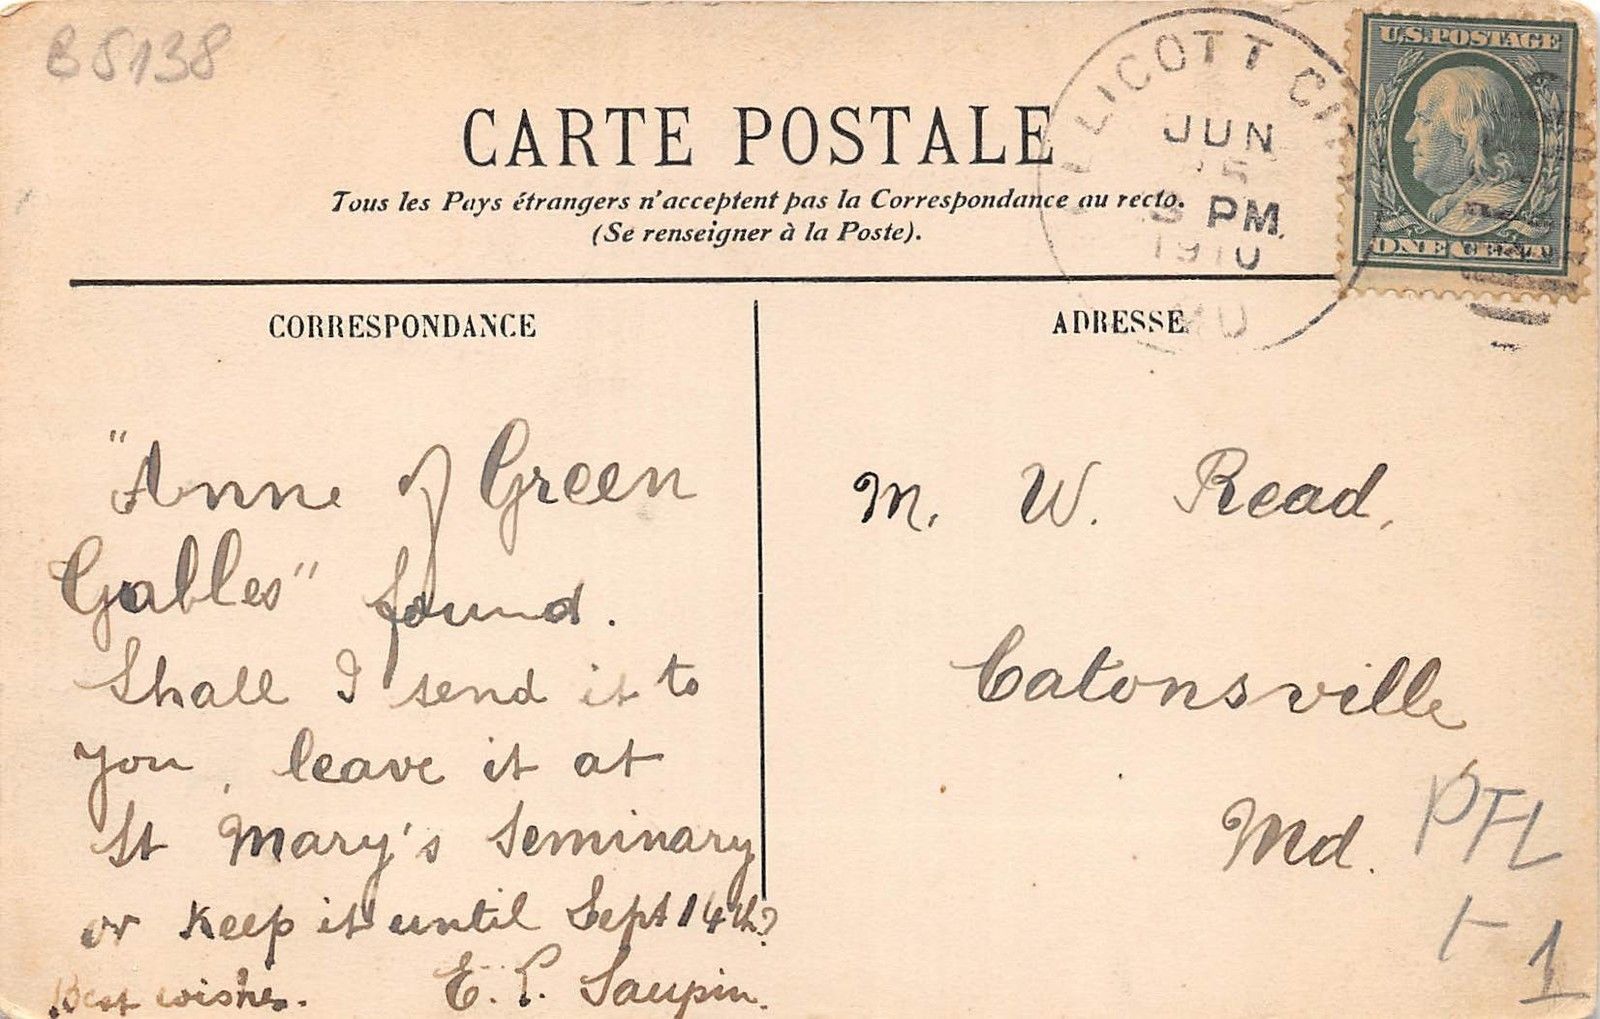 B5138
CARTE POSTALE
Tous les Pays étrangers n'acceptent pas la Correspondance au recto.
(Se renseigner à la Poste).
LICOTT CI
JUN
PM.
1910
U.S. POSTAGE
ONE CENT
CORRESPONDANCE
"Anne of Green
Gables" found.
Shall I send it to
you, leave it at
St Mary's Seminary
or keep it until Sept 14th?
Best wishes. E. P. Saupin.
ADRESSE
M. W. Read,
Catonsville
Md.
PFL
1